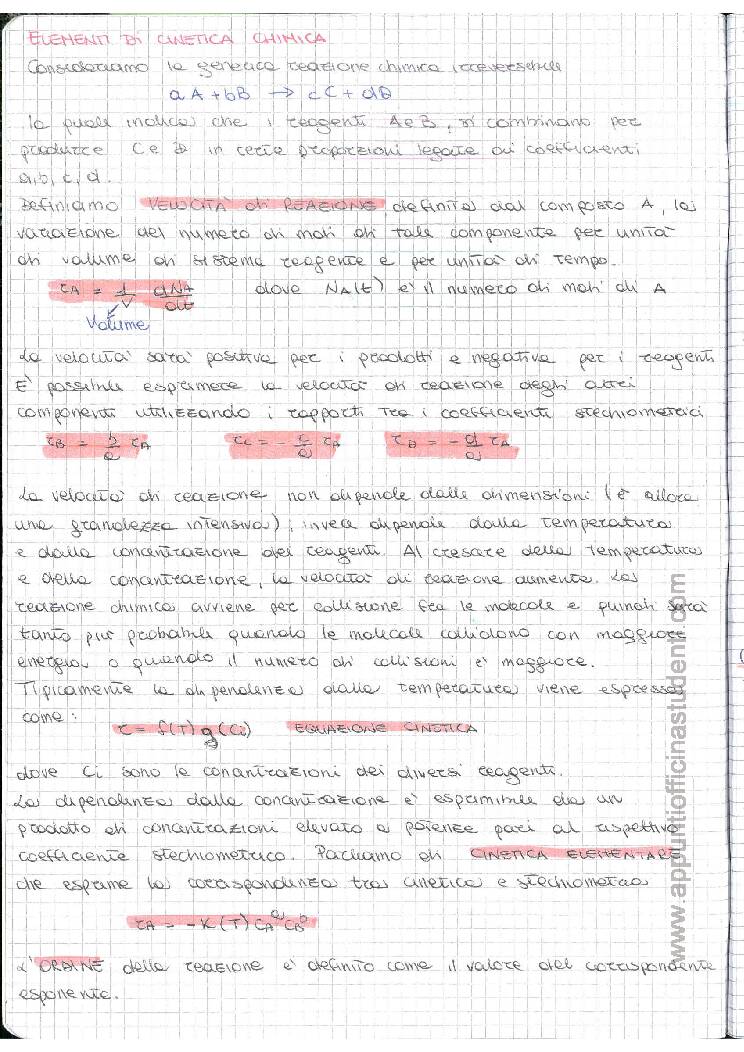 ELEMENTI DI CINETICA CHIMICA
Consideriamo la generica reazione chimica irreversibile
aA + bB → cC + dD
la quale indica che i reagenti A e B, si combinano per
produrre C e D in certe proporzioni legate ai coefficienti
a, b, c, d.
Definiamo VELOCITA' di REAZIONE, definita dal composto A, la
variazione del numero di moli di tale componente per unità
di volume di sistema reagente e per unità di tempo.
rA = 1/V dNA/dt dove NA(t) è il numero di moli di A
Volume
La velocità sarà positiva per i prodotti e negativa per i reagenti
E' possibile esprimere la velocità di reazione degli altri
componenti utilizzando i rapporti tra i coefficienti stechiometrici
rB = b/a rA rC = - c/a rA rD = - d/a rA
La velocità di reazione non dipende dalle dimensioni (è allora
una grandezza intensiva), invece dipende dalla temperatura
e dalla concentrazione dei reagenti. Al crescere della temperatura
e della concentrazione, la velocità di reazione aumenta. La
reazione chimica avviene per collisione fra le molecole e quindi sarà
tanto più probabile quando le molecole collidono con maggiore
energia o quando il numero di collisioni è maggiore.
Tipicamente la dipendenza dalla temperatura viene espressa
come:
r = f(T) g(Ci) EQUAZIONE CINETICA
dove Ci sono le concentrazioni dei diversi reagenti.
La dipendenza dalla concentrazione è esprimibile da un
prodotto di concentrazioni elevato a potenze pari al rispettivo
coefficiente stechiometrico. Parliamo di CINETICA ELEMENTARE
che esprime la corrispondenza tra cinetica e stechiometria
rA = -K(T) CA^a CB^b
L'ORDINE della reazione è definito come il valore del corrispondente
esponente.
www.appuntiofficinastudent.com